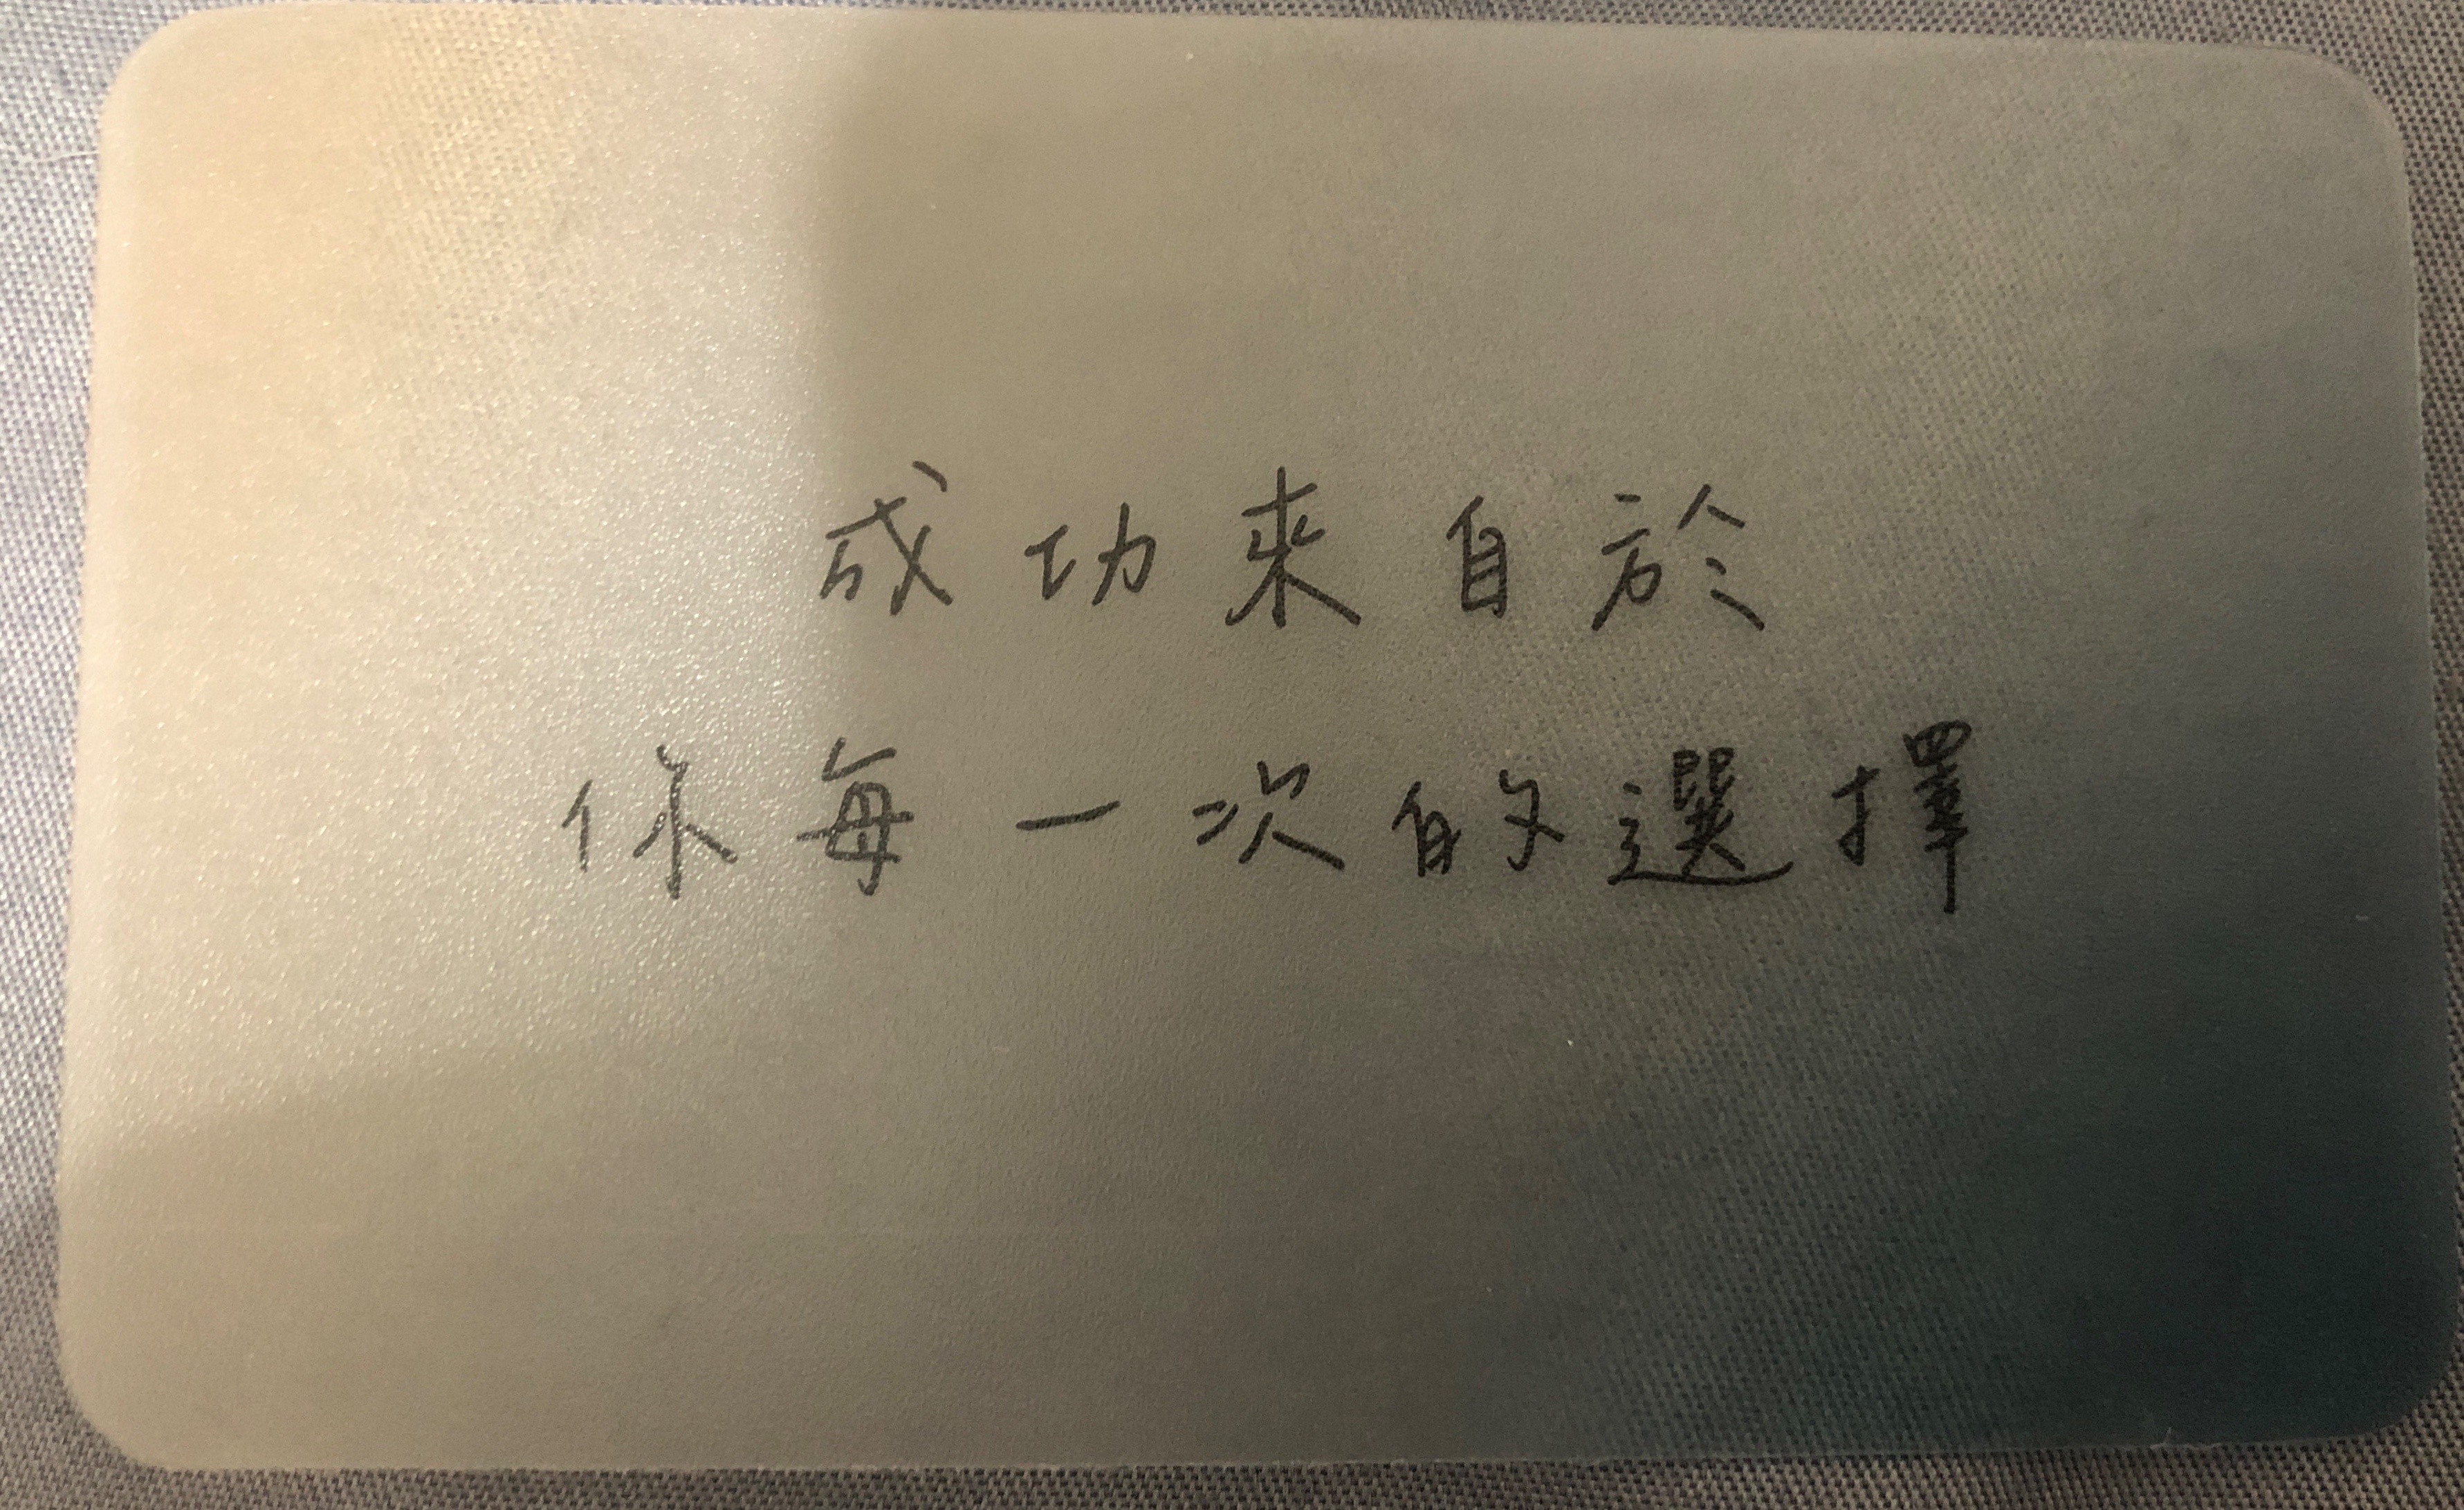 成功來自於
你每一次的選擇